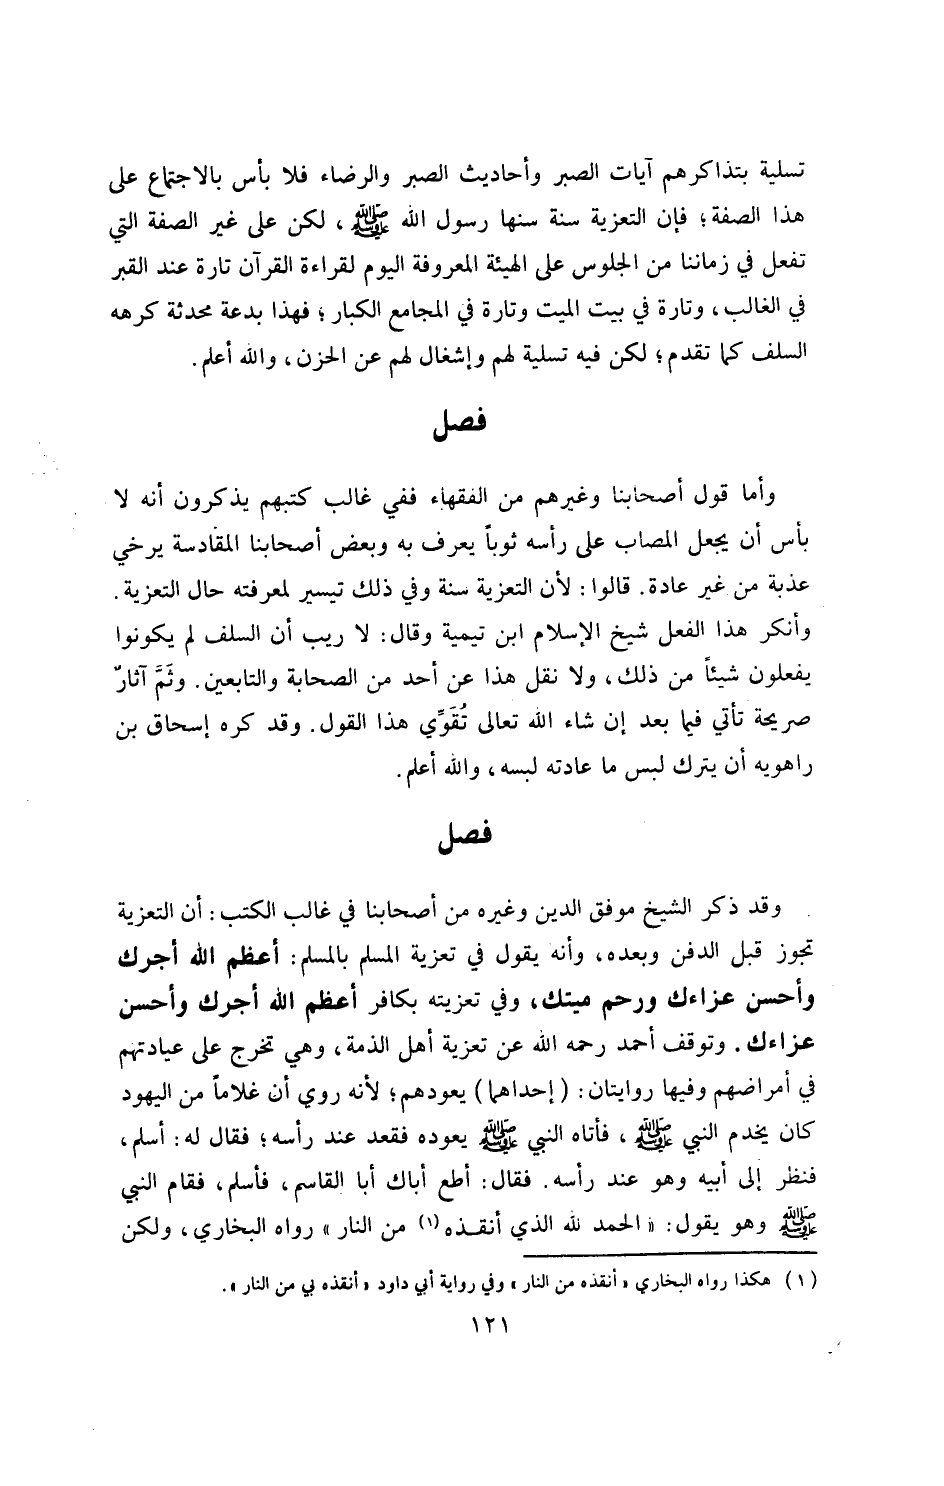 تسلية بتذاكرهم آيات الصبر وأحاديث الصبر والرضاء فلا بأس بالاجتماع على
هذا الصفة؛ فإن التعزية سنة سنها رسول الله ﷺ، لكن على غير الصفة التي
تفعل في زماننا من الجلوس على الهيئة المعروفة اليوم لقراءة القرآن تارة عند القبر
في الغالب، وتارة في بيت الميت وتارة في المجامع الكبار؛ فهذا بدعة محدثة كرهه
السلف كما تقدم؛ لكن فيه تسلية لهم وإشغال لهم عن الحزن، والله أعلم.
فصل
وأما قول أصحابنا وغيرهم من الفقهاء ففي غالب كتبهم يذكرون أنه لا
بأس أن يجعل المصاب على رأسه ثوباً يعرف به وبعض أصحابنا المقادسة يرخي
عذبة من غير عادة. قالوا: لأن التعزية سنة وفي ذلك تيسير لمعرفته حال التعزية.
وأنكر هذا الفعل شيخ الإسلام ابن تيمية وقال: لا ريب أن السلف لم يكونوا
يفعلون شيئاً من ذلك، ولا نقل هذا عن أحد من الصحابة والتابعين. وثَمَّ آثارٌ
صريحة تأتي فيما بعد إن شاء الله تعالى تُقَوِّي هذا القول. وقد كره إسحاق بن
راهويه أن يترك لبس ما عادته لبسه، والله أعلم.
فصل
وقد ذكر الشيخ موفق الدين وغيره من أصحابنا في غالب الكتب: أن التعزية
تجوز قبل الدفن وبعده، وأنه يقول في تعزية المسلم بالمسلم: أعظم الله أجرك
وأحسن عزاءك ورحم ميتك، وفي تعزيته بكافر أعظم الله أجرك وأحسن
عزاءك. وتوقف أحمد رحمه الله عن تعزية أهل الذمة، وهي تخرج على عيادتهم
في أمراضهم وفيها روايتان: (إحداهما) يعودهم؛ لأنه روي أن غلاماً من اليهود
كان يخدم النبي ﷺ، فأتاه النبي ﷺ يعوده فقعد عند رأسه؛ فقال له: أسلم،
فنظر إلى أبيه وهو عند رأسه. فقال: أطع أباك أبا القاسم، فأسلم، فقام النبي
ﷺ وهو يقول: «الحمد لله الذي أنقذه(١) من النار» رواه البخاري، ولكن
(١) هكذا رواه البخاري «أنقذه من النار» وفي رواية أبي داود «أنقذه بي من النار».
١٢١